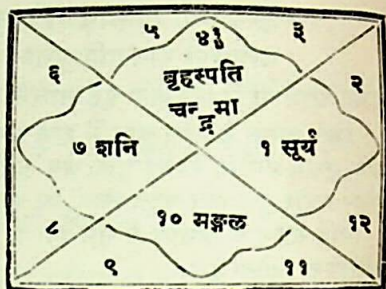 ५ ४ ३
६ बृहस्पति २
चन्द्रमा
७ शनि १ सूर्य
८ १० मङ्गल १२
९ ११